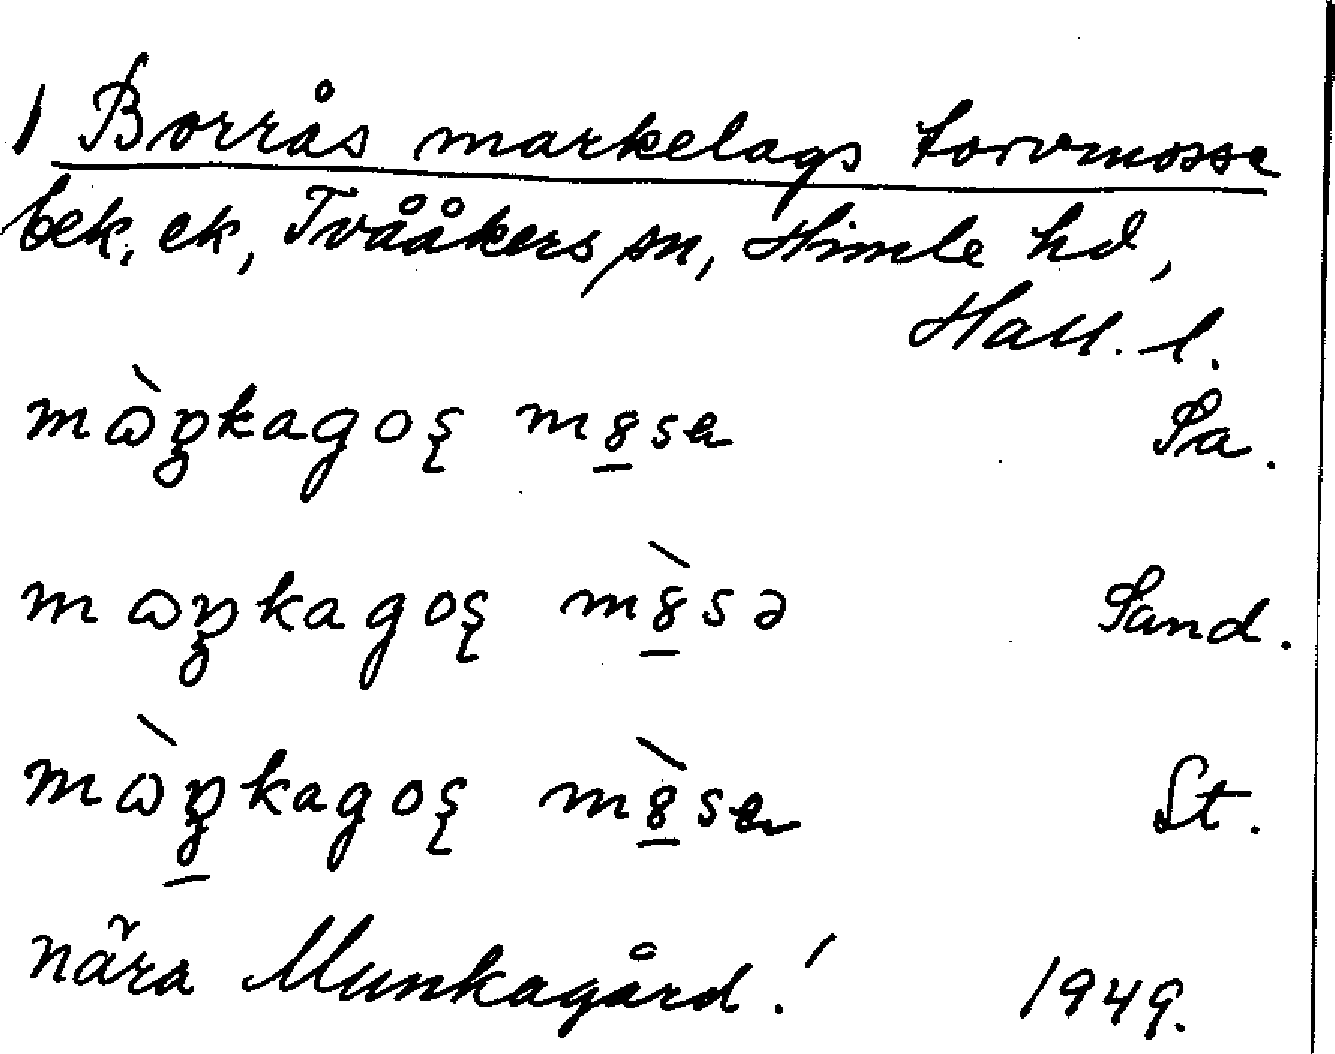 / Borrås markelags torvmosse
bek. ek, Tvååkers sn, Himle hd,
Hall. l.
mɷ̀ŋkagoș m8̲sɐ Sa.
mɷŋkagoș m8̲̀sə Sand.
mɷ̀ŋ̲kagoș m8̲̀sɐ St.
nära Munkagård! 1949.